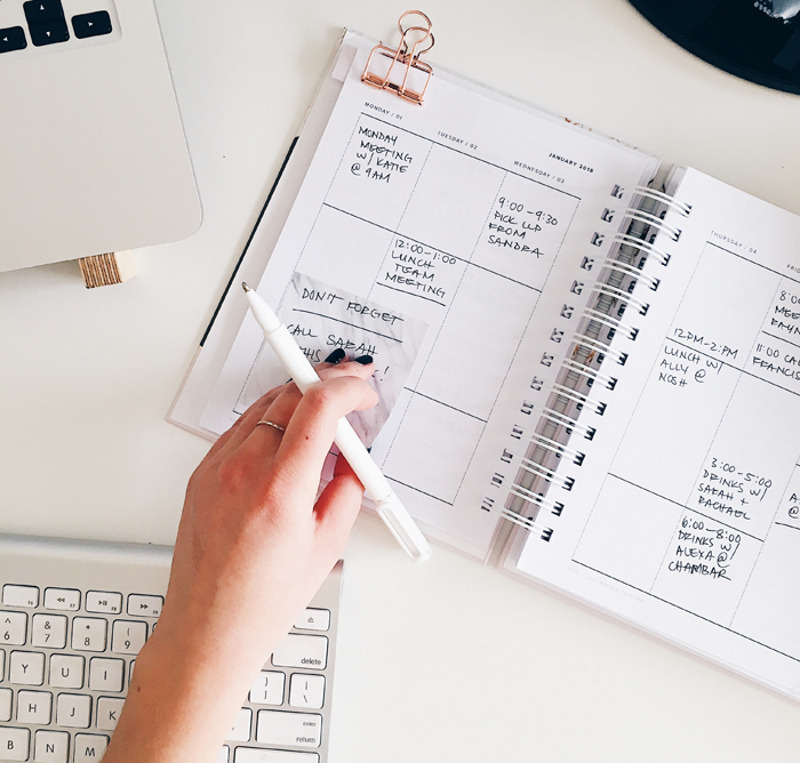 MONDAY / 01
MONDAY
MEETING
W/ KATIE
@ 9AM
TUESDAY / 02
12:00-1:00
LUNCH
TEAM
MEETING
JANUARY 2018
WEDNESDAY / 03
9:00-9:30
PICK UP
FROM
SANDRA
DON'T FORGET
CALL SARAH
THIS
THURSDAY / 04
12PM-2:PM
LUNCH W/
ALLY @
NOSH
3:00-5:00
DRINKS W/
SARAH +
RACHAEL
6:00-8:00
DRINKS W/
ALEXA @
CHAMBAR
8:00
MEE
11:00 CA
FRANCIS
A
@
6
&
7
*
8
9
Y
U
I
H
J
K
B
N
M
delete
enter
return